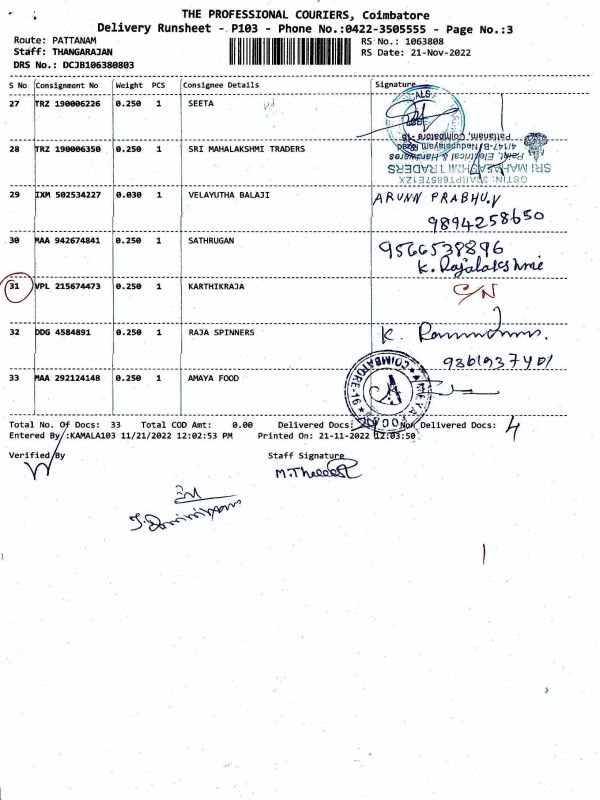 THE PROFESSIONAL COURIERS, Coimbatore
Delivery Runsheet - P103 - Phone No.:0422-3505555 - Page No.:3
Route: PATTANAM RS No.: 1063808
Staff: THANGARAJAN RS Date: 21-Nov-2022
DRS No.: DCJB106380803
S No Consignment No Weight PCS Consignee Details Signature
27 TRZ 190006226 0.250 1 SEETA
28 TRZ 190006350 0.250 1 SRI MAHALAKSHMI TRADERS
GSTIN:
SRI MAHALAKSHMI TRADERS
Paint, Electrical & Hardwares
4/147-B, Nadupalayam Road
Pattanam, Coimbatore - 16.
29 IXM 502534227 0.030 1 VELAYUTHA BALAJI ARUNN PRABHU.V
9894258650
30 MAA 942674841 0.250 1 SATHRUGAN 9566538896
K. Rajalakshmi
31 VPL 215674473 0.250 1 KARTHIKRAJA C/N
32 DDG 4584891 0.250 1 RAJA SPINNERS K.
33 MAA 292124148 0.250 1 AMAYA FOOD
COIMBATORE-19
Total No. Of Docs: 33 Total COD Amt: 0.00 Delivered Docs: Non Delivered Docs: 4
Entered By :KAMALA103 11/21/2022 12:02:53 PM Printed On: 21-11-2022 12:03:50
Verified By Staff Signature